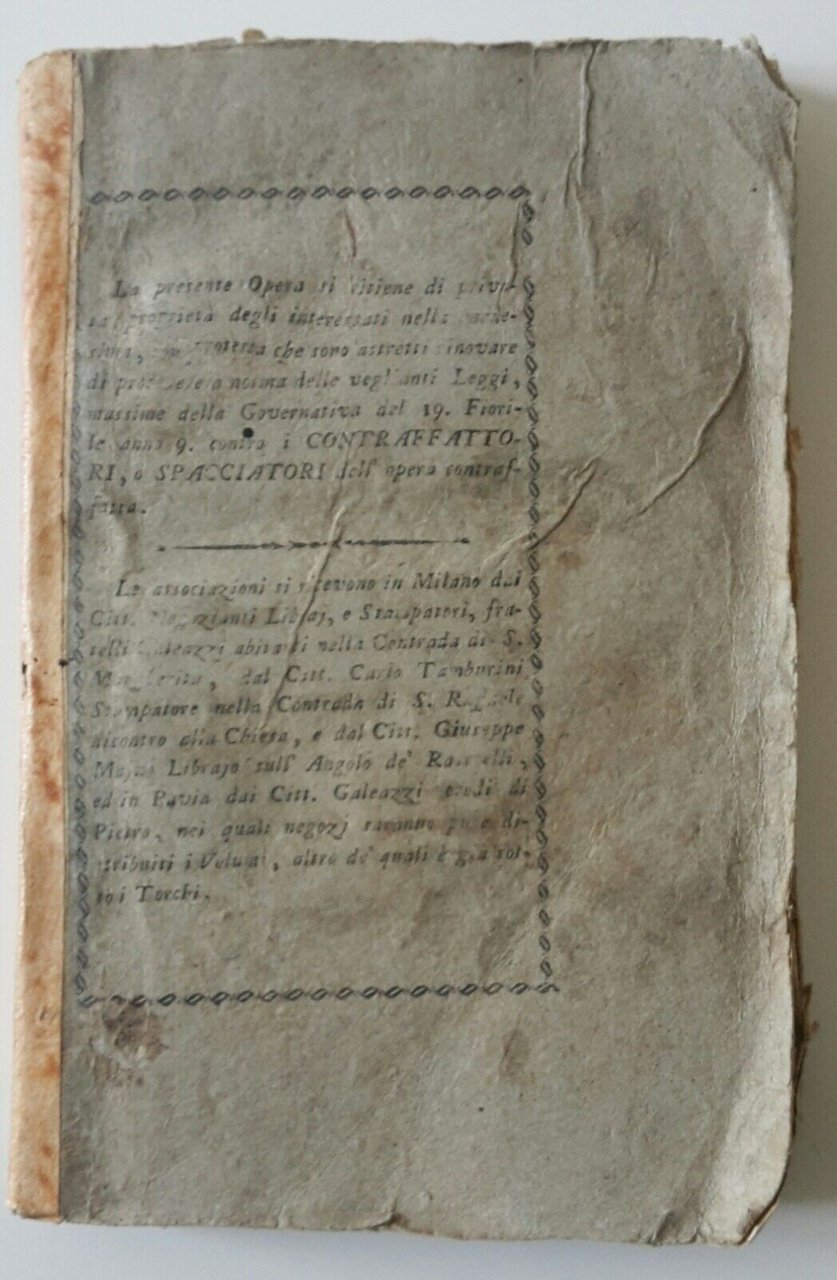 La presente Opera si ritiene di priva-
ta proprietà degli interessati nella
che sono astretti rinovare
di procedere a norma delle veglianti Leggi,
massime della Governativa del 19. Fiori-
le anno 9. contro i CONTRAFFATTO-
RI, o SPACCIATORI dell' opera contraf-
fatta.
Le associazioni si ricevono in Milano dai
Citt. Negozianti Libraj, e Stampatori, fra-
telli Galeazzi abitanti nella Contrada di S.
Margherita, dal Citt. Carlo Tamburini
Stampatore nella Contrada di S. Raffaele
dicontro alla Chiesa, e dal Citt. Giuseppe
Librajo sull' Angolo de'
ed in Pavia dai Citt. Galeazzi eredi di
Pietro, nei quali negozj saranno pure di-
stribuiti i Volumi, altro de' quali è già sot-
to i Torchi.